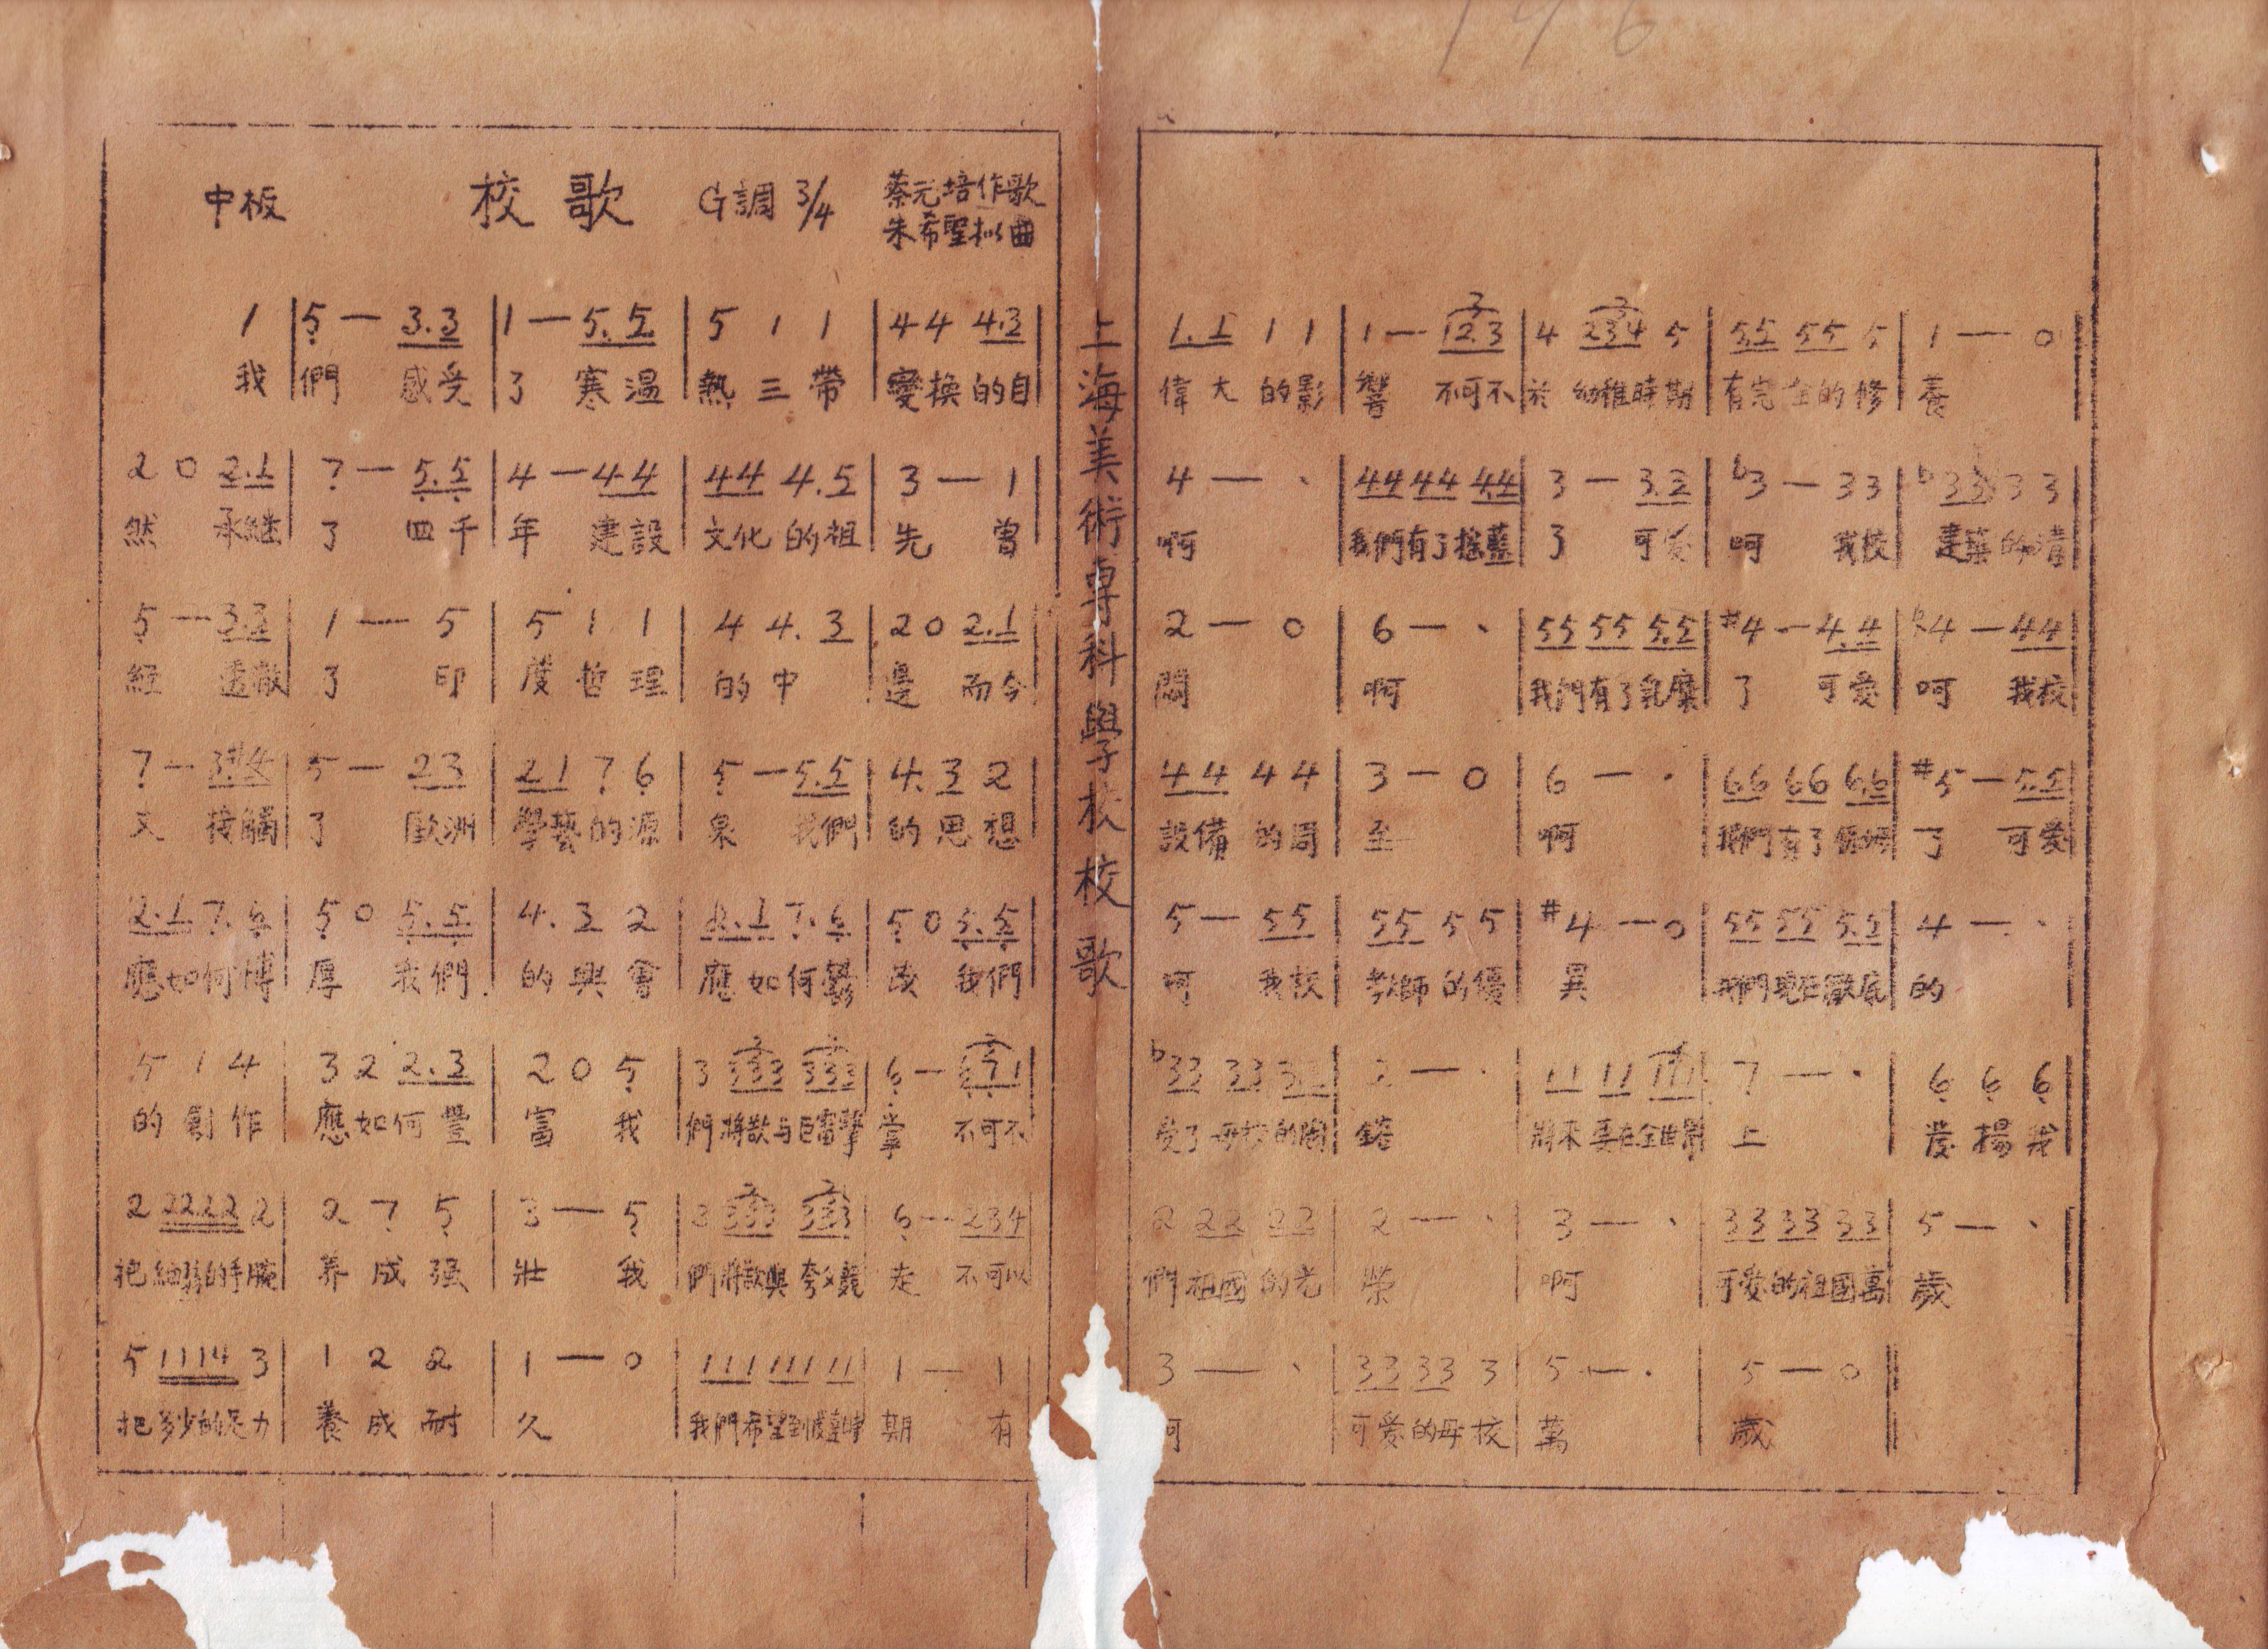 中板 校歌 G調 3/4 蔡元培作歌
朱希聖拟曲
1 | 5 — 3.3 | 1 — 5.5 | 5 1 1 | 4 4 4.3 |
我 | 們 感受 | 了 寒温 | 熱三帶 | 變換的自
2 0 2.1 | 7 — 5.5 | 4 — 4 4 | 4 4 4.5 | 3 — 1 |
然 承継 | 了 四千 | 年 建設 | 文化的祖 | 先 曾
5 — 3.3 | 1 — 5 | 5 1 1 | 4 4. 3 | 2 0 2.1 |
經 透澈 | 了 印 | 度哲理 | 的中 | 邊 而今
7 — 3.#4 | 5 — 2 3 | 2 1 7 6 | 5 — 5.5 | 4. 3 2 |
又 接觸 | 了 歐洲 | 學藝的源 | 泉 我們 | 的思想
2.1 7.6 | 5 0 5.5 | 4. 3 2 | 2.1 7.6 | 5 0 5.5 |
應如何博 | 厚 我們 | 的興會 | 應如何 | 我們
5 1 4 | 3 2 2.3 | 2 0 5 | 3 333 333 | 6 — 6 7 1 |
的創作 | 應如何豐 | 富 我 | 們將歆与巨雷擊 | 掌 不可不
2 2222 2 | 2 7 5 | 3 — 5 | 3 333 333 | 6 — 2 3 4 |
把細弱的手腕 | 养成强 | 壯 我 | 們將歆與夸父競 | 走 不可以
5 1114 3 | 1 2 2 | 1 — 0 | 111 111 11 | 1 — 1 |
把多少的足力 | 養成耐 | 久 | 我們希望到 時 | 期 有
上海美術專科學校校歌
1.1 1 1 | 1 — 12.3 | 4 234 5 | 55 55 5 | 1 — 0
偉大的影 | 響 不可不 | 於幼稚時期 | 有完全的修 | 養
4 — · | 44 44 44 | 3 — 3.2 | b3 — 3 3 | b33 3 3 |
啊 | 我們有了搖藍 | 了 可爱 | 呵 我校 | 建築的清
2 — 0 | 6 — · | 55 55 5.5 | #4 — 4.4 | ♮4 — 44 |
閟 | 啊 | 我們有了乳糜 | 了 可愛 | 呵 我校
44 4 4 | 3 — 0 | 6 — · | 66 66 6.6 | #5 — 5.5 |
設備的周 | 至 | 啊 | 我們有了保姆 | 了 可愛
5 — 55 | 55 5 5 | #4 — 0 | 55 55 5.5 | 4 — · |
呵 我校 | 教師的優 | 異 | 我們現在 | 的
b33 33 33 | 2 — · | 11 11 111 | 7 — · | 6 6 6 |
受了母校的陶 | 鎔 | 將來要在全世界 | 上 | 發揚我
2 22 22 | 2 — · | 3 — · | 33 33 33 | 5 — · |
們祖國的光 | 榮 | 啊 | 可愛的祖國萬 | 歲
3 — · | 33 33 3 | 5 — · | 5 — 0 ||
呵 | 可愛的母校 | 萬 | 歲